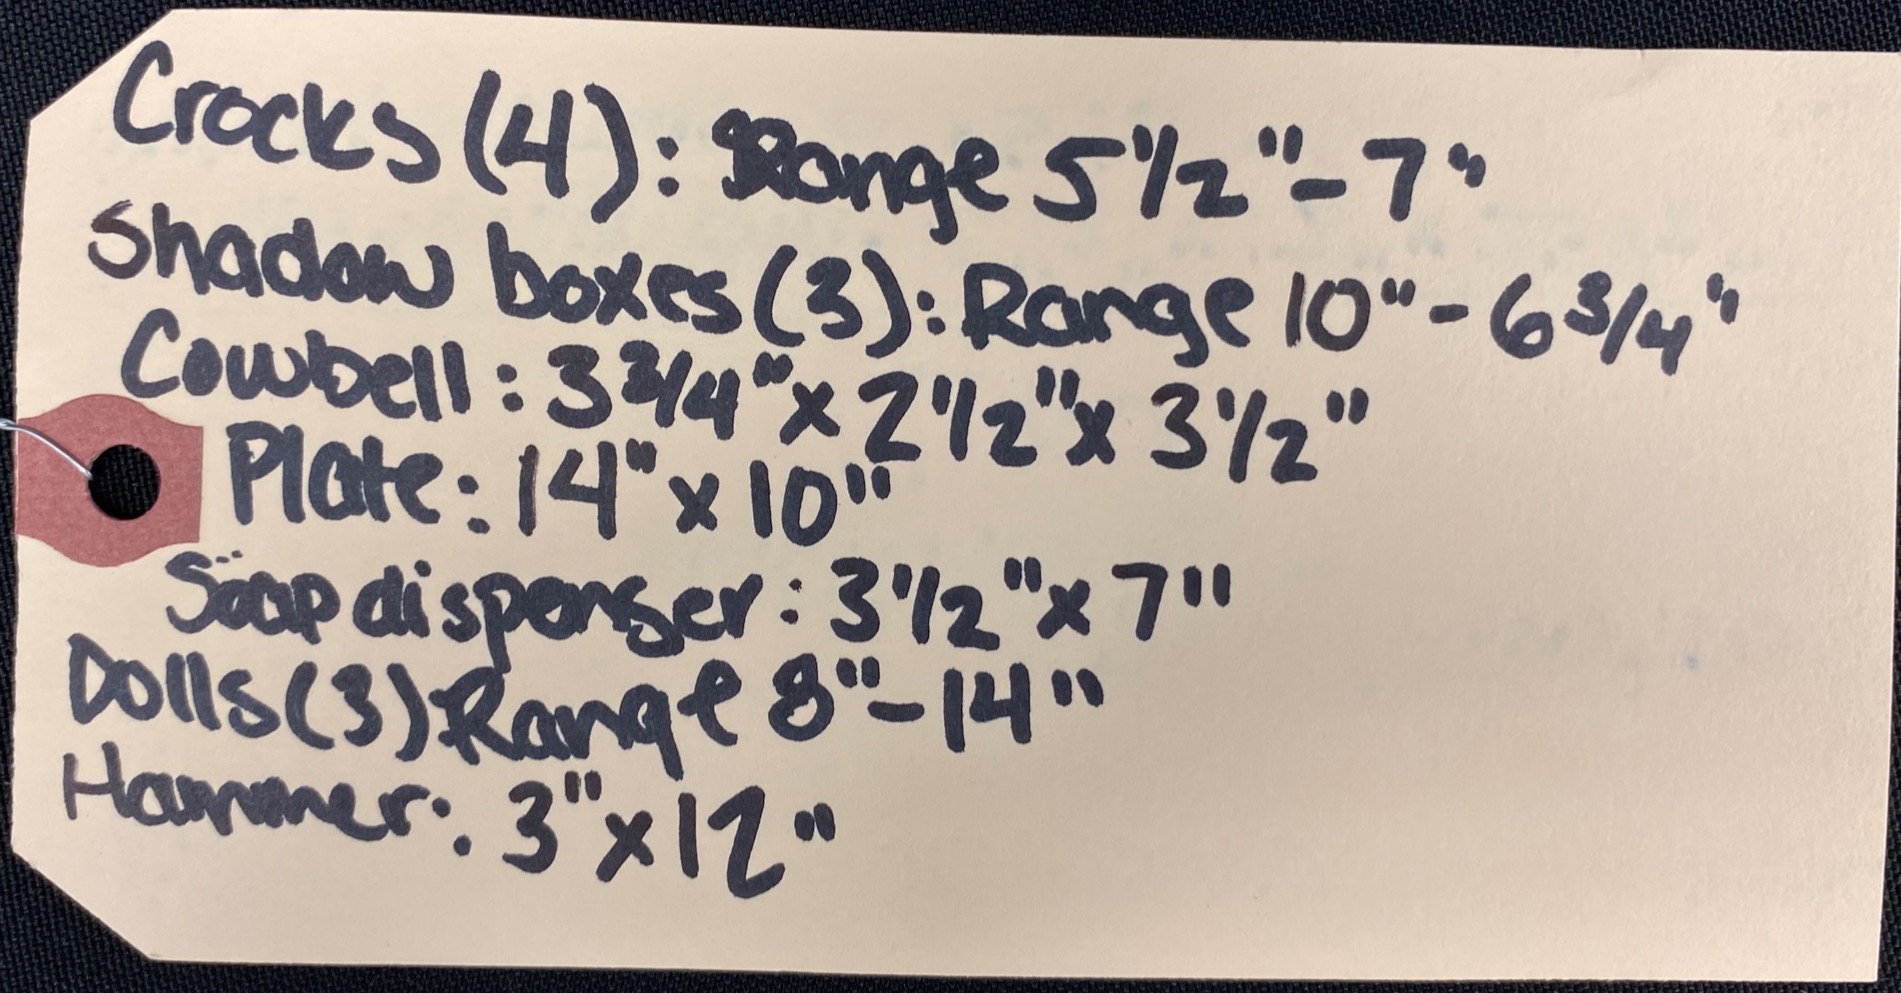 Crocks (4): Range 5 1/2" - 7"
Shadow boxes (3): Range 10" - 6 3/4"
Cowbell: 3 3/4" x 2 1/2" x 3 1/2"
Plate: 14" x 10"
Soap dispenser: 3 1/2" x 7"
Dolls (3) Range 8" - 14"
Hammer: 3" x 12"